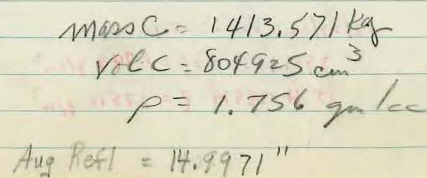 mass C = 1413.571 kg
vol C = 804925 cm³
ρ = 1.756 gm/cc
Aug Refl = 14.9971"